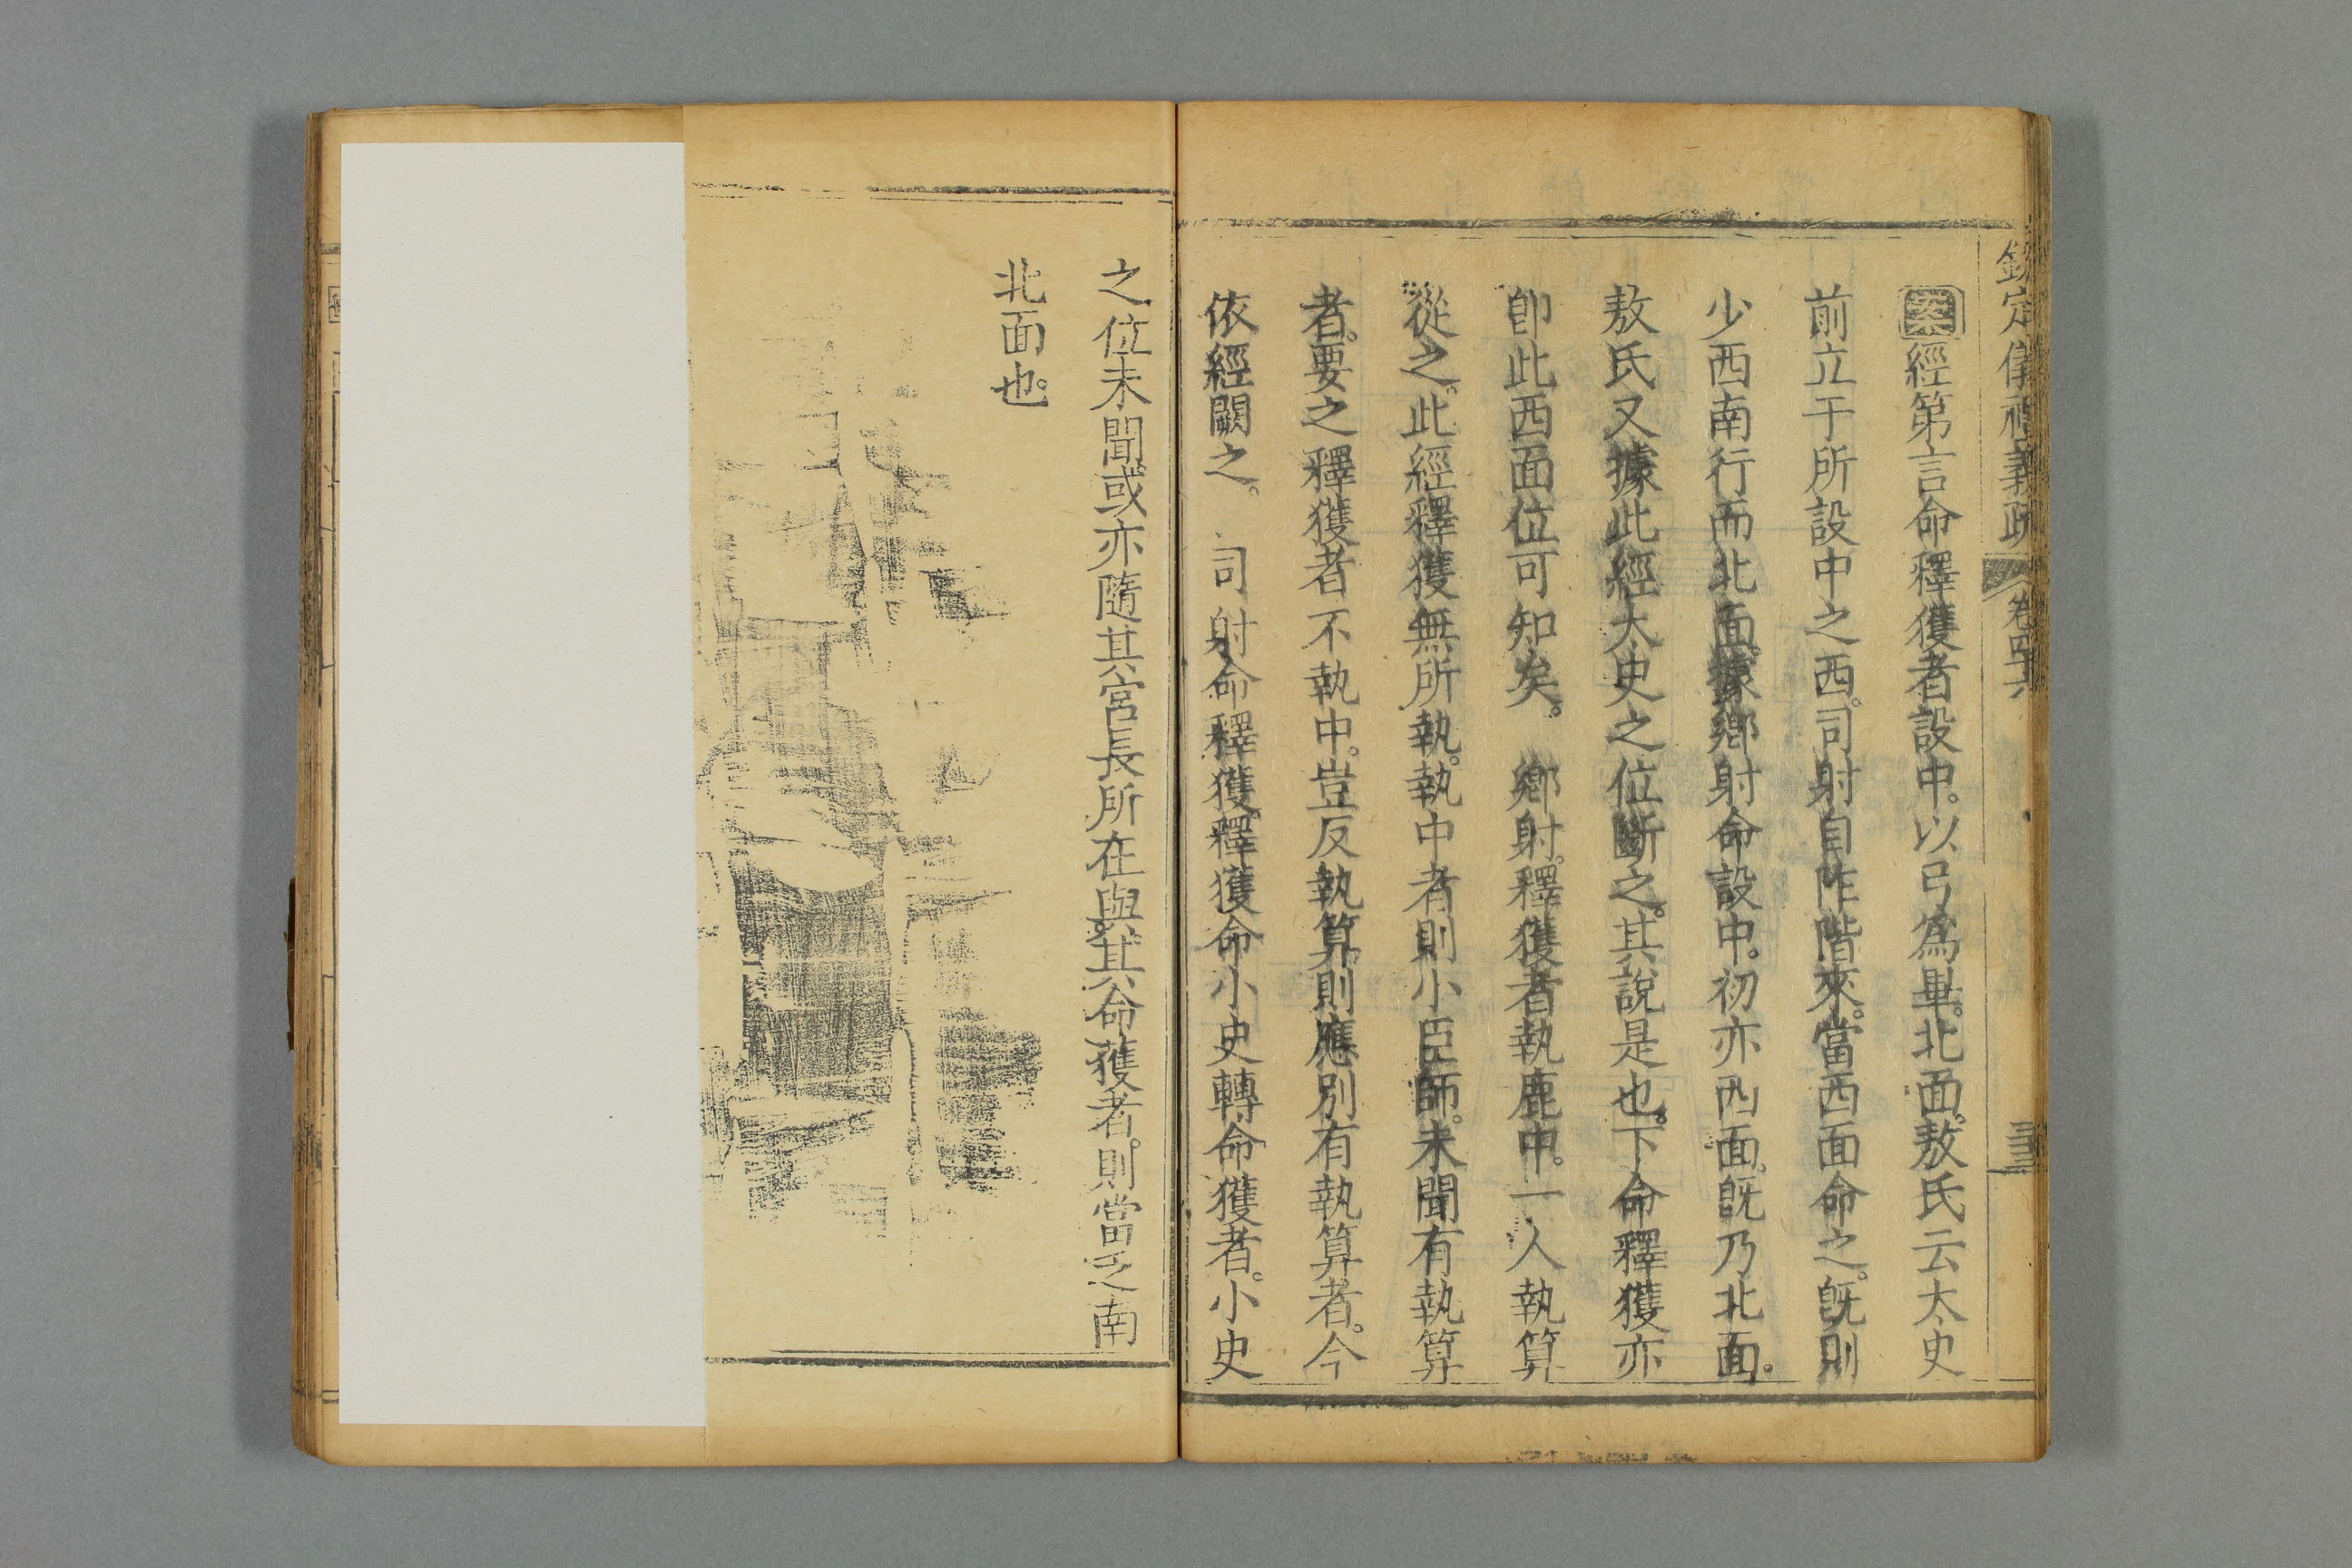 欽定儀禮義疏 卷四十六
案經第言命釋獲者設中。以弓爲畢。北面。敖氏云太史
前立于所設中之西。司射自阼階來。當西面命之。旣則
少西南行而北面。據鄉射命設中。初亦西面。旣乃北面。
敖氏又據此經太史之位斷之。其說是也。下命釋獲亦
卽此西面位可知矣。 鄉射。釋獲者執鹿中。一人執算
從之。此經釋獲無所執。執中者則小臣師。未聞有執算
者。要之釋獲者不執中。豈反執算。則應別有執算者。今
依經闕之。 司射命釋獲釋獲命小史轉命獲者。小史
之位未聞或亦隨其官長所在與。其命獲者。則當之南
北面也。